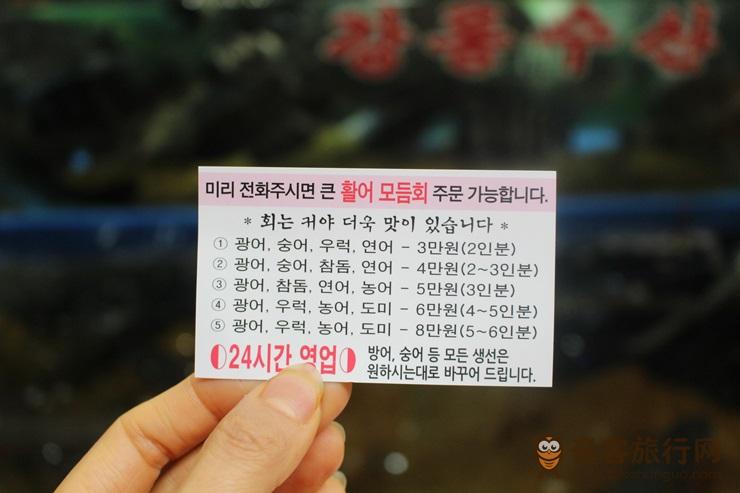 강릉수산
미리 전화주시면 큰 활어 모듬회 주문 가능합니다.
* 회는 커야 더욱 맛이 있습니다 *
① 광어, 숭어, 우럭, 연어 - 3만원(2인분)
② 광어, 숭어, 참돔, 연어 - 4만원(2~3인분)
③ 광어, 참돔, 연어, 농어 - 5만원(3인분)
④ 광어, 우럭, 농어, 도미 - 6만원(4~5인분)
⑤ 광어, 우럭, 농어, 도미 - 8만원(5~6인분)
24시간 영업
방어, 숭어 등 모든 생선은
원하시는대로 바꾸어 드립니다.
旅行网